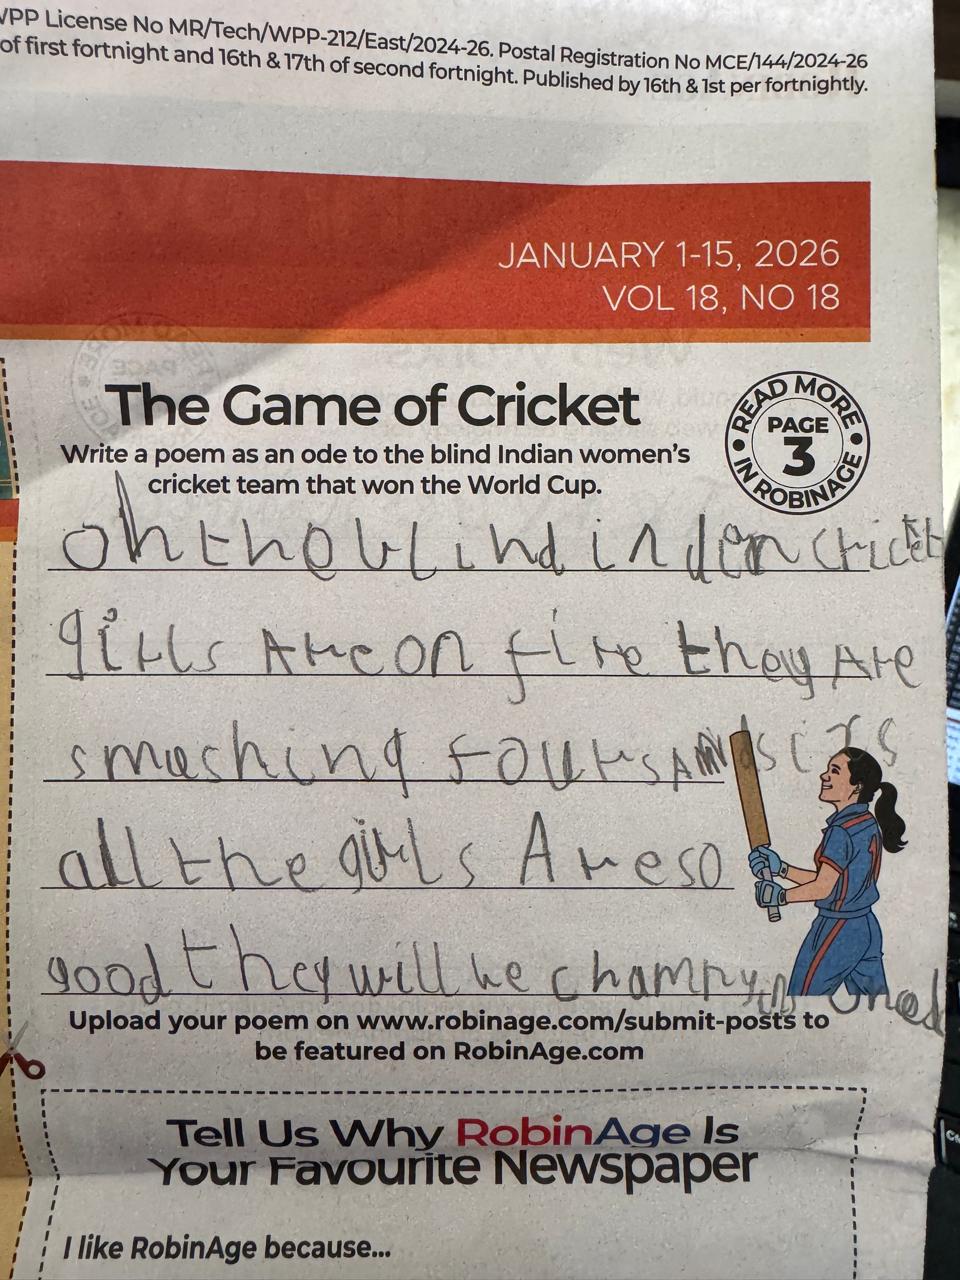 WPP License No MR/Tech/WPP-212/East/2024-26. Postal Registration No MCE/144/2024-26
of first fortnight and 16th & 17th of second fortnight. Published by 16th & 1st per fortnightly.
JANUARY 1-15, 2026
VOL 18, NO 18
The Game of Cricket
READ MORE
PAGE
3
IN ROBINAGE
Write a poem as an ode to the blind Indian women's
cricket team that won the World Cup.
oh the blind indan cricket
girls Are on fire they Are
smashing fours And sixs
all the girls Are so
good they will be champyins
Upload your poem on www.robinage.com/submit-posts to
be featured on RobinAge.com
Tell Us Why RobinAge Is
Your Favourite Newspaper
I like RobinAge because...